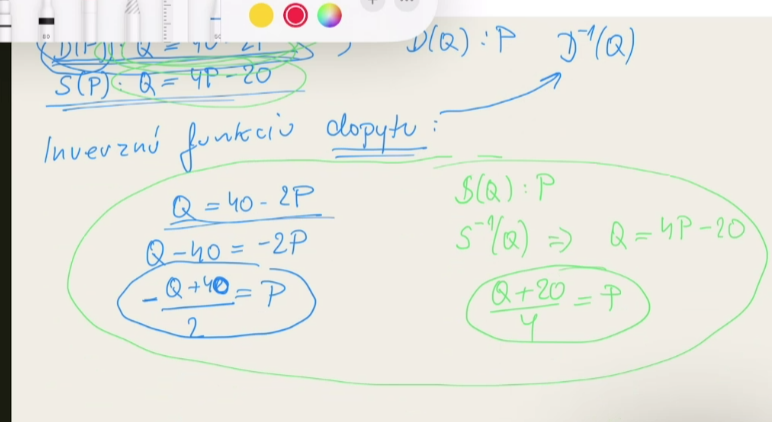 D(P): Q = 40 - 2P ; D(Q) : P D⁻¹(Q)
S(P): Q = 4P - 20
Inverznú funkciu dopytu :
Q = 40 - 2P
Q - 40 = -2P
(-Q + 40)/2 = P
S(Q) : P
S⁻¹(Q) => Q = 4P - 20
(Q + 20)/4 = P